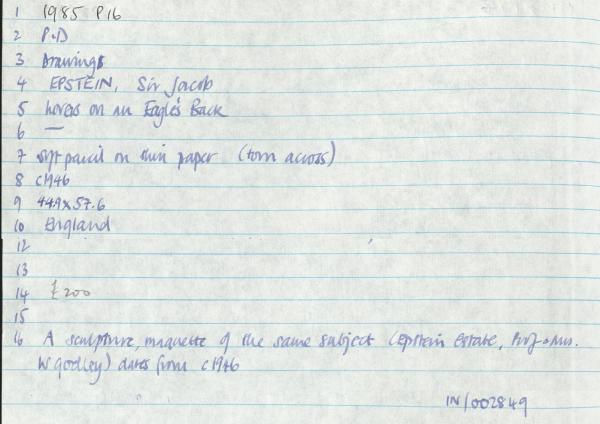 1 1985 P.16
2 P.D
3 Drawings
4 EPSTEIN, Sir Jacob
5 Lovers on an Eagle's Back
6 —
7 soft pencil on thin paper (torn across)
8 c1946
9 44.9 x 57.6
10 England
12
13
14 £200
15
16 A sculpture, maquette of the same subject (Epstein Estate, Prof + Mrs.
W Godley) dates from c1946
IN/002849